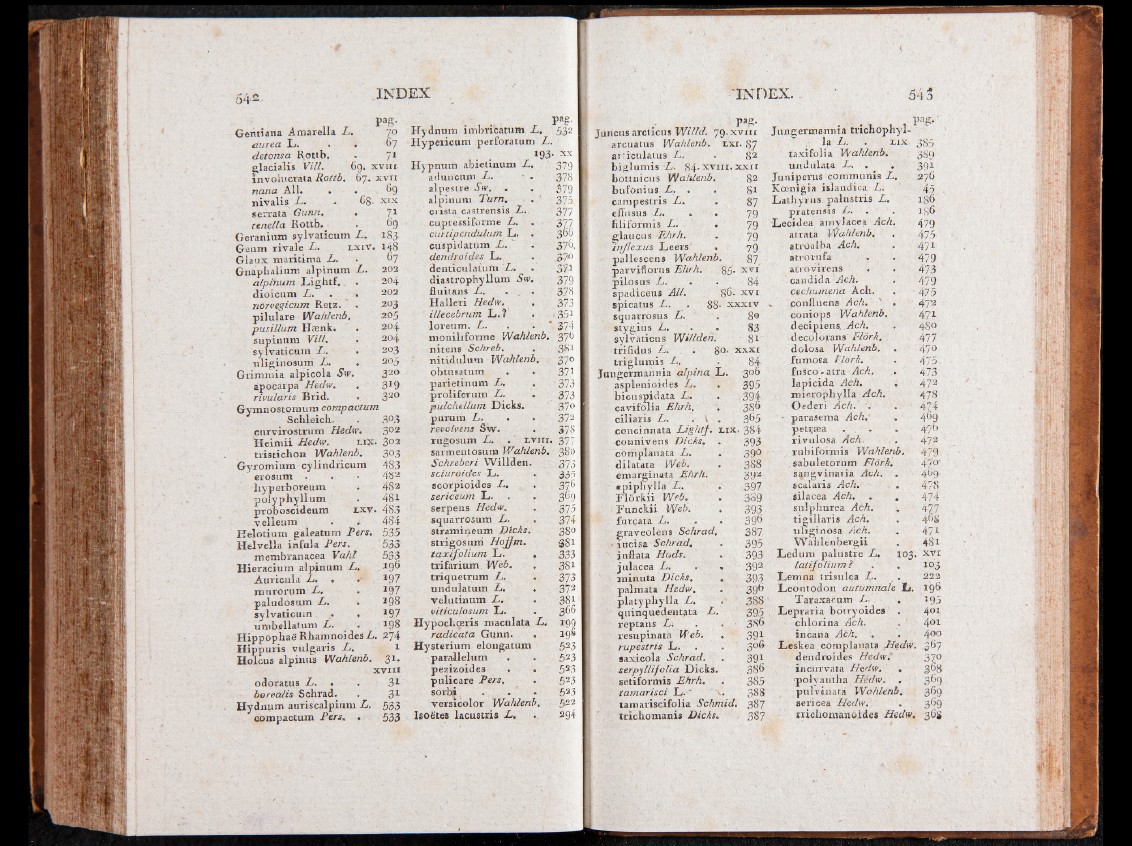 542 INDEX
pag.
Gentiana Amarella L. 70
aurea L. . . 67
detonsa Rottb. . 71
glacialis Vill. 69. XVIII
involucrata Rottb. 67. XVII
nana All. . . 69
nivalis L. . 68. XIX
serrata Gunn. . 71
tenella Rottb. . 69
Geranium sylvaticum L. 183
Geum rivale L. LXIV. 148
Glaux maritima L. . 67
Gnaphalium alpinum L. 202
alpinum Lightf. . 204
dioicum L. . . 202
norvegicum Retz. . 203
pilulare Wahlenb. 205
pusillum Hænk. . 204
supinum Vill. . 204
sylvaticum L. . 203
uliginosum L. . 205
Grimmia alpicola Sw. 320
apocarpa Hedw. . 319
rivularis Brid. . 320
Gymnostomum compactum
Schleich. . 303
curvirostrum Hedw. 302
Heimii Hedw. LIX. 302
tristichon Wahlenb. 303
Gyromium cylindricum 483
erosum . . . 482
hyperboreum . 482
polyphyllum . 481
proboscideum LXV. 483
velleum . . 484
Helotium galeatum Pers. 535
Helvella infula Pers. 533
membranacea Vahl 533
Hieracium alpinum L. 196
Auricula L. . . 197
murorum L. . 197
paludosum L. . 198
sylvaticum . 197
umbellatum L. . 198
Hippophaë Rhamnoides L. 274
Hippuris vulgaris L. 1
Holcus alpinus Wahlenb. 31.
XVIII
odoratus L. . . 31
borealis Schrad. . 31
Hydnum auriscalpium L. 533
compactum Pers. . 533
pag.
Hydnum imbricatum L. 532
Hypericum perforatum L.
193. XX
Hypnum abietinum L. 379
aduncum L. . 378
alpestre Sw. . . 379
alpinum Turn. . 375
crista castrensis L. 377
cupressiforme L. . 377
curtipendulum L. . 360
cuspidatum L. . 376
dendroides L. . 370
denticulatum L. . 371
diastrophyllum Sw. 379
fluitans L. . . 378
Halleri Hedw. . 373
illecebrum L.? . 351
loreum. L. . . 374
moniliforme Wahlenb. 376
nitens Schreb. . 381
nitidulum Wahlenb. 370
obtusatum . 371
parietinum L. . 373
proliferum L. . 373
pulchellum Dicks. 370
purum L. . . 372
revolvens Sw. . 378
rugosum L. . LVIII. 377
sarmentosum Wahlenb. 380
Schreberi Willden. 373
sciuroides L. . 335
scorpioides L. . 376
sericeum L. . . 369
serpens Hedw. . 375
squarrosum L. . 374
stramineum Dicks. 380
strigosum Hoffm. 381
taxifolium L. . 333
trifarium Web. . 381
triquetrum L. . 373
undulatum L. . 372
velutinum L. . 381
viticulosum L. . 366
Hypochœris maculata L. 199
radicata Gunn. . 198
Hysterium elongatum 523
parallelum . . 523
pezizoides . . 523
pulicare Pers. . 523
sorbi . . . 523
versicolor Wahlenb. 522
Isoëtes lacustris L. . 294
INDEX. 543
pag.
Juncus arcticus Willd. 79. XVIII
arcuatus Wahlenb. LXI. 87
articulatus L. . 82
biglumis L. 84. XVIII. XXII
bottnicus Wahlenb. 82
bufonius L. . . 81
campestris L. . 87
effusus L. . . 79
filiformis L. . 79
glaucus Ehrh. . 79
inflexus Leers . 79
pallescens Wahlenb. 87
parviflorus Ehrh. 85. XVI
pilosus L. . . 84
spadiceus All. 86. XVI
spicatus L. . 88. XXXIV
squarrosus L. . 80
stygius L. . . 83
sylvaticus Willden. 81
trifidus L. . 80. XXXI
triglumis L. . 84
Jungermannia alpina L. 306
asplenioides L. . 395
bicuspidata L. . 394
cavifolia Ehrh. . 386
ciliaris L. . . 365
concinnata Lightf. LIX. 384
connivens Dicks. . 393
complanata L. . 390
dilatata Web. . 388
emarginata Ehrh. 392
epiphylla L. . 397
Flörkii Web. . 389
Funckii Web. . 393
furcata L. . . 396
graveolens Schrad. 387
incisa Schrad. . 395
inflata Huds. . 393
julacea L. . . 392
minuta Dicks. . 393
palmata Hedw. . 396
platyphylla L. . 388
quinquedentata L. 395
reptans L. . . 386
resupinata Web. . 391
rupestris L. . . 306
saxicola Schrad. . 391
serpyllifolia Dicks. 386
setiformis Ehrh. . 385
tamarisci L. . 388
tamariscifolia Schmid. 387
trichomanis Dicks. 387
pag.
Jungermannia trichophyl-
la L. . LIX 385
taxifolia Wahlenb. 389
undulata L. . . 391
Juniperus communis L. 276
Kœnigia islandica L. 45
Lathyrus palustris L. 186
pratensis L. . . 186
Lecidea amylacea Ach. 479
arrata Wahlenb. . 475
atroalba Ach. . 471
atrorufa . . 479
atrovirens . . 473
candida Ach. . 479
cechumena Ach. . 475
confluens Ach. . 472
coniops Wahlenb. 471
decipiens. Ach. . 480
decolorans Flörk. 477
dolosa Wahlenb. . 470
fumosa Flörk. . 475
fusco-atra Ach. . 473
lapicida Ach. . 472
microphylla Ach. 478
Oederi Ach. . . 474
parasema Ach. . 469
petræa . . . 476
rivulosa Ach. . 472
rubiformis Wahlenb. 479
sabuletorum Flörk. 470
sangvinaria Ach. . 469
scalaris Ach. . 478
silacea Ach. . . 474
sulphurea Ach. . 477
tigillaris Ach. . 468
uliginosa Ach. . 471
Wahlenbergii . 481
Ledum palustre L. 103. XVI
latifolium? . . 103
Lemna trisulca L. . 222
Leontodon autumnale L. 196
Taraxacum L. . 195
Lepraria botryoides . 401
chlorina Ach. . 401
incana Ach. . . 400
Leskea complanata Hedw. 367
dendroides Hedw. 370
incurvata Hedw. . 368
polyantha Hedw. . 369
pulvinata Wahlenb. 369
sericea Hedw. . 369
trichomanoides Hedw. 368